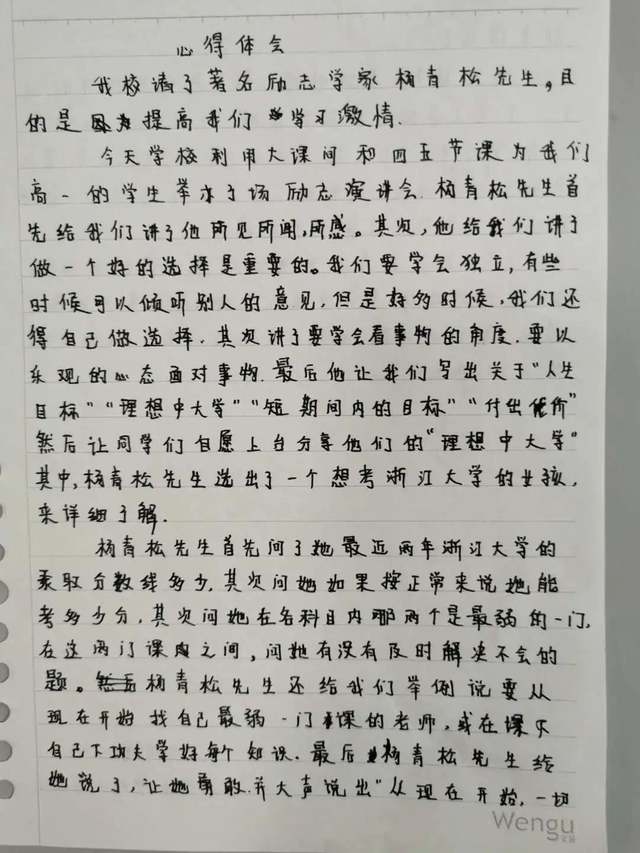 心得体会
我校请了著名励志学家杨青松先生。目
的是提高我们学习激情.
今天学校利用大课间和四五节课为我们
高一的学生举办了场励志演讲会.杨青松先生首
先给我们讲了他所见所闻,所感。其次,他给我们讲了
做一个好的选择是重要的。我们要学会独立,有些
时候可以倾听别人的意见,但是好多时候,我们还
得自己做选择.其次讲了要学会看事物的角度.要以
乐观的心态面对事物.最后他让我们写出关于"人生
目标""理想中大学""短期间内的目标""付出代价"
然后让同学们自愿上台分享他们的"理想中大学"
其中,杨青松先生选出了一个想考浙江大学的女孩,
来详细了解.
杨青松先生首先问了她最近两年浙江大学的
录取分数线多少.其次问她如果按正常来说她能
考多少分,其次问她在各科目内哪两个是最弱的一门,
在这两门课之间,问她有没有及时解决不会的
题。杨青松先生还给我们举例说要从
现在开始找自己最弱一门课的老师,或在课下
自己下功夫学好每个知识.最后杨青松先生给
她说了,让她勇敢.并大声说出"从现在开始,一切
Wengu